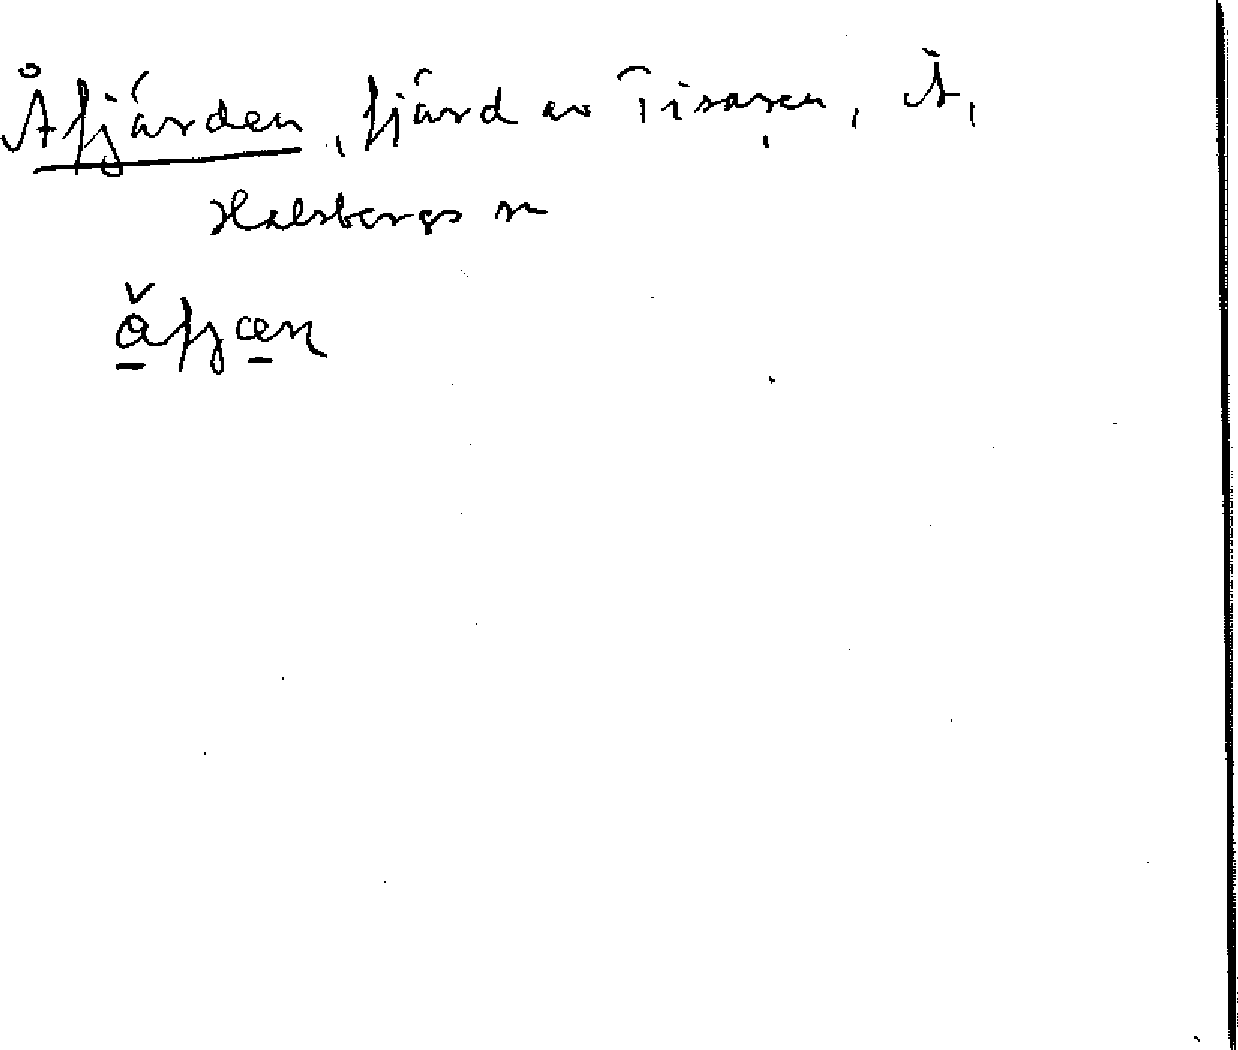 Åfjärden, fjärd av Tisaren, Å,
Hallsbergs sn
åfjæn